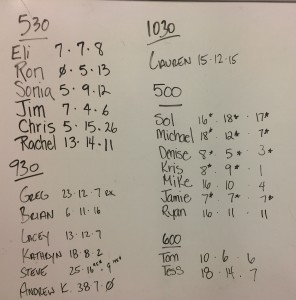 530
Eli 7 · 7 · 8
Ron Ø · 5 · 13
Sonia 5 · 9 · 12
Jim 7 · 4 · 6
Chris 5 · 15 · 26
Rachel 13 · 14 · 11
930
GREG 23 · 12 · 7 RX
BRIAN 6 · 11 · 16
LACEY 13 · 12 · 7
KATHRYN 18 · 8 · 2
STEVE 25 · 16 · 9
ANDREW K. 38 · 7 · Ø
1030
LAUREN 15 · 12 · 15
500
Sol 16* · 18* · 17*
Michael 18* · 12* · 7*
Denise 8* · 5* · 3*
Kris 8* · 9* · 1
Mike 16 10 4
Jamie 7* · 7* · 7*
Ryan 16 · 11 · 11
600
Tom 10 · 6 · 6
Tess 18 · 14 · 7